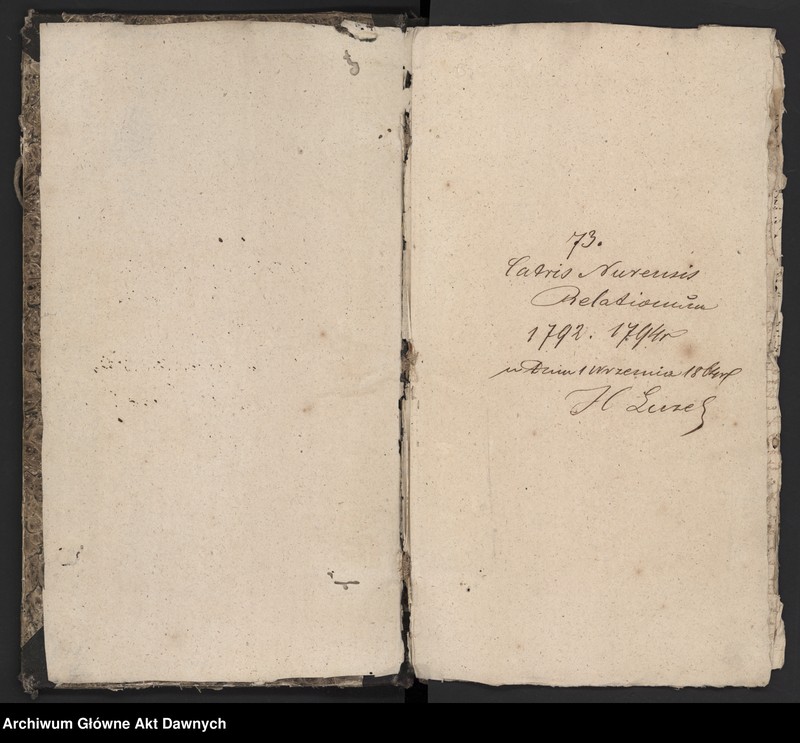 73.
Catris Nurensis
Relationum
1792. 1794r
w Dniu 1 Września
H
Archiwum Główne Akt Dawnych